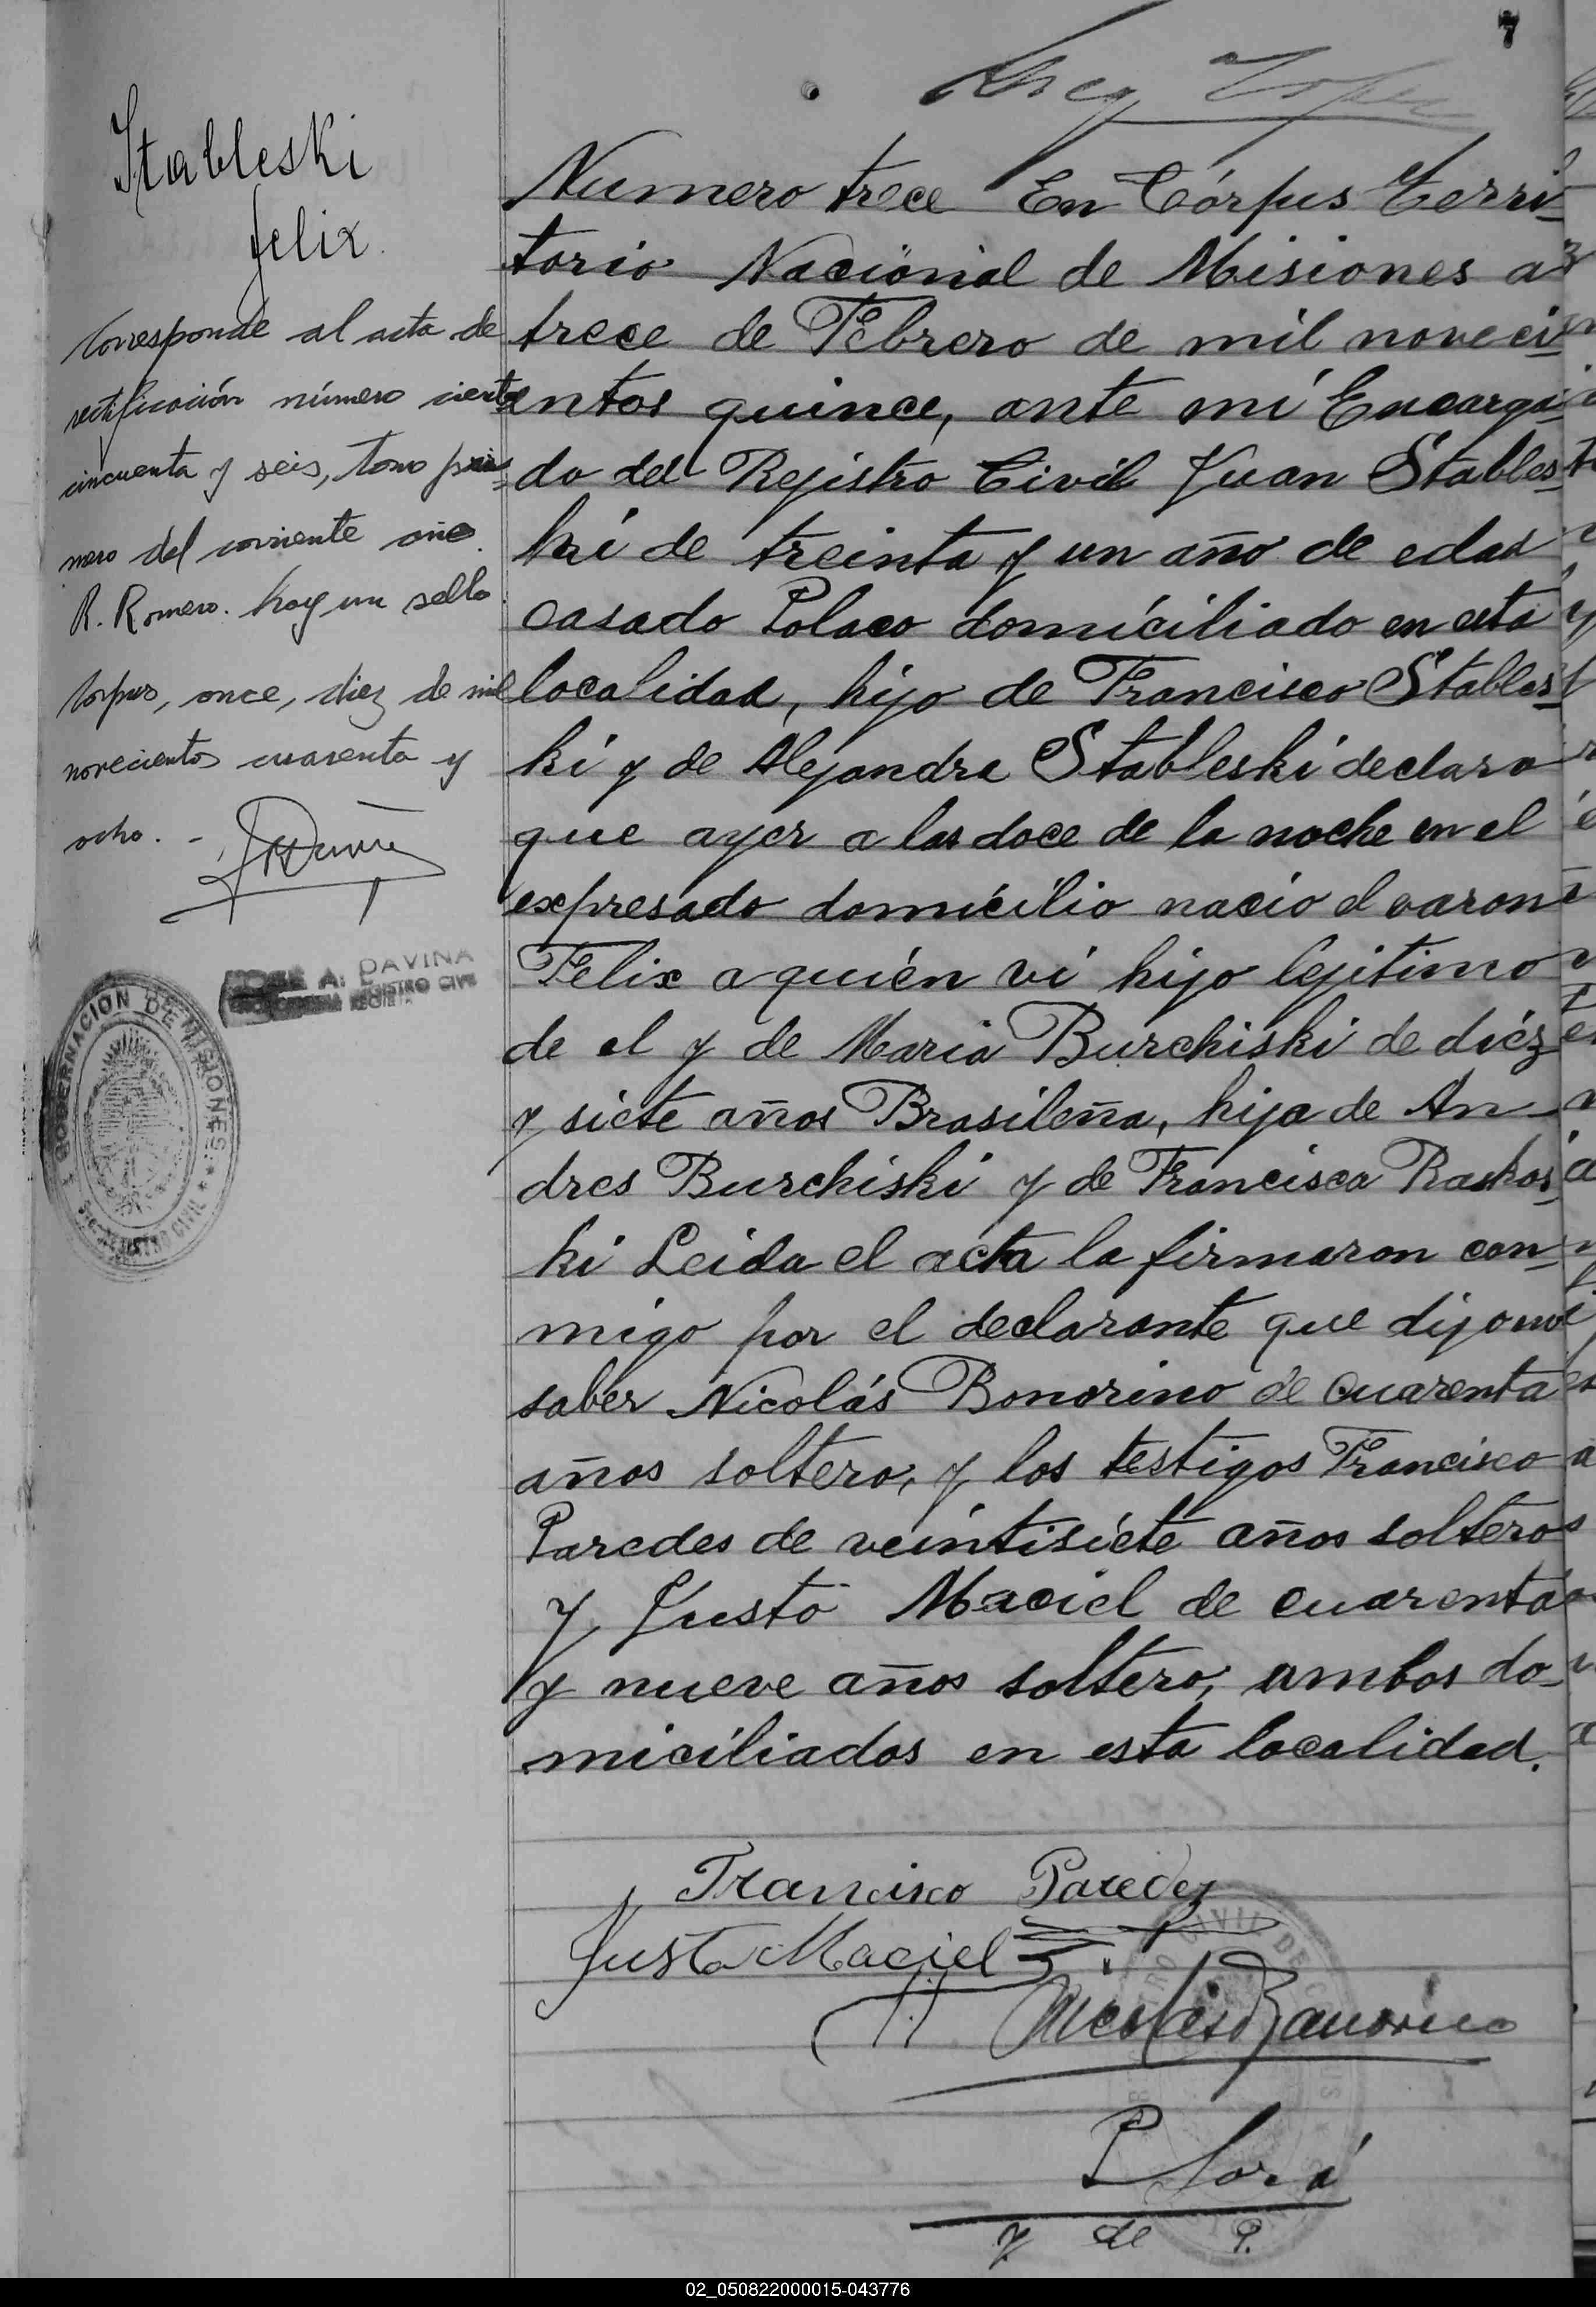 7
Stableski
felix.
Corresponde al acta de
rectificación número ciento
cincuenta y seis, tomo pri=
mero del corriente año.
R. Romero. hay un sello.
Corpus, once, diez de mil
novecientos cuarenta y
ocho. -
JOSE A. DAVIÑA
REGISTRO CIVIL
GOBERNACION DE MISIONES
REGISTRO CIVIL
Numero trece En Córpus Terri-
torio Nacional de Misiones a
trece de Febrero de mil noveci-
entos quince, ante mi Encarga-
do del Rejistro Civil Juan Stables-
ki de treinta y un año de edad
casado Polaco domiciliado en esta
localidad, hijo de Francisco Stables-
ki y de Alejandra Stableski declaro
que ayer a las doce de la noche en el
expresado domicilio nacio el varon
Felix a quién vi hijo lejitimo
de el y de Maria Burchiski de diéz
y siete años Brasileña, hija de An-
dres Burchiski y de Francisca Raskos-
ki Leida el acta la firmaron con-
migo por el declarante que dijo no
saber Nicolás Bonorino de cuarenta
años soltero, y los testigos Francisco
Paredes de veintisiete años soltero
y Justo Maciel de cuarenta
y nueve años soltero, ambos do-
miciliados en esta localidad.
Francisco Paredez
Justo Maciel
Nicolás Bonorino
J. de P.
02_050822000015-043776